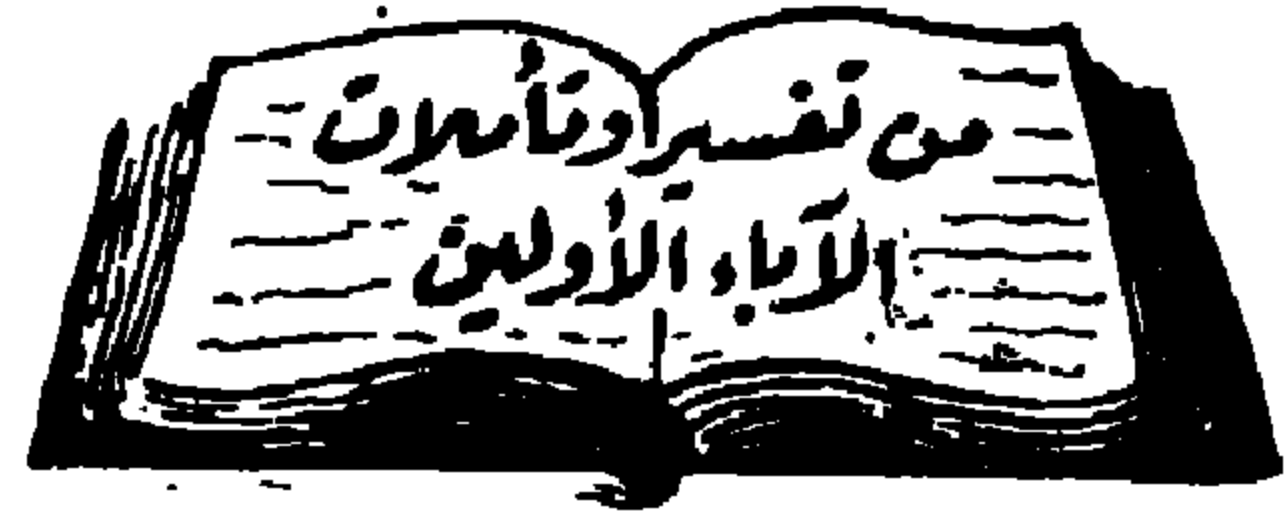 من تفسير وتأملات
الآباء الأولين